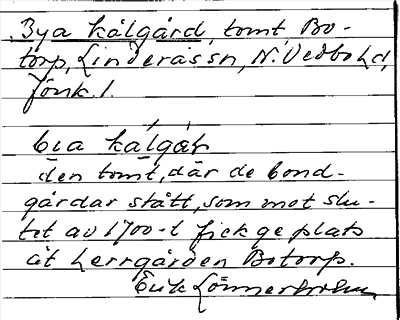 Bya kålgård, tomt, Bo-
torp, Linderås sn, N. Vedbo hd,
Jönk. l.
bɩa kálgár
den tomt, där de bond-
gårdar stått, som mot slu-
tet av 1700-t fick ge plats
åt herrgården Botorp.
Erik Lönnerholm